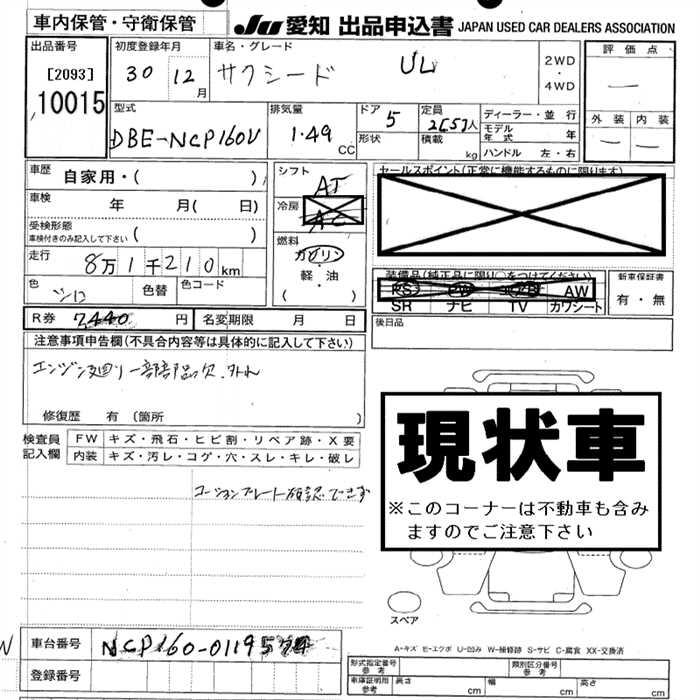 車内保管・守衛保管
JU 愛知 出品申込書 JAPAN USED CAR DEALERS ASSOCIATION
出品番号
[2093]
10015
初度登録年月
30 12月
車名・グレード
サクシード UL
2WD
・
4WD
評価点
—
外装 内装
— —
型式
DBE-NCP160V
排気量
1.49 CC
ドア 5
形状
定員
2[5]人
積載 kg
ディーラー・並行
モデル年式 年
ハンドル 左・右
車歴 自家用・( )
車検 年 月( 日)
受検形態
車検付きのみ記入して下さい ( )
走行 8万1千210km
色 シロ 色替 色コード
シフト AT
冷房 AC
燃料
ガソリン
・
軽・油
( )
セールスポイント(正常に機能するものに限ります)
装備品(純正品に限り○をつけてください)
PS PW AW
SR ナビ TV カワシート
新車保証書
有・無
後日品
R券 7440 円 名変期限 月 日
注意事項申告欄(不具合内容等は具体的に記入して下さい)
エンジン廻り一部部品欠、外れ
修復歴 有 (箇所 )
検査員記入欄
FW キズ・飛石・ヒビ割・リペア跡・X要
内装 キズ・汚レ・コゲ・穴・スレ・キレ・破レ
コーションプレート確認できず
現状車
※このコーナーは不動車も含み
ますのでご注意下さい
スペア
A-キズ E-エクボ U-凹み W-補修跡 S-サビ C-腐食 XX-交換済
車台番号 NCP160-0119574
登録番号
形式指定番号 参考
類別区分番号 参考
車庫証明用 参考 長さ cm 幅 cm 高さ cm